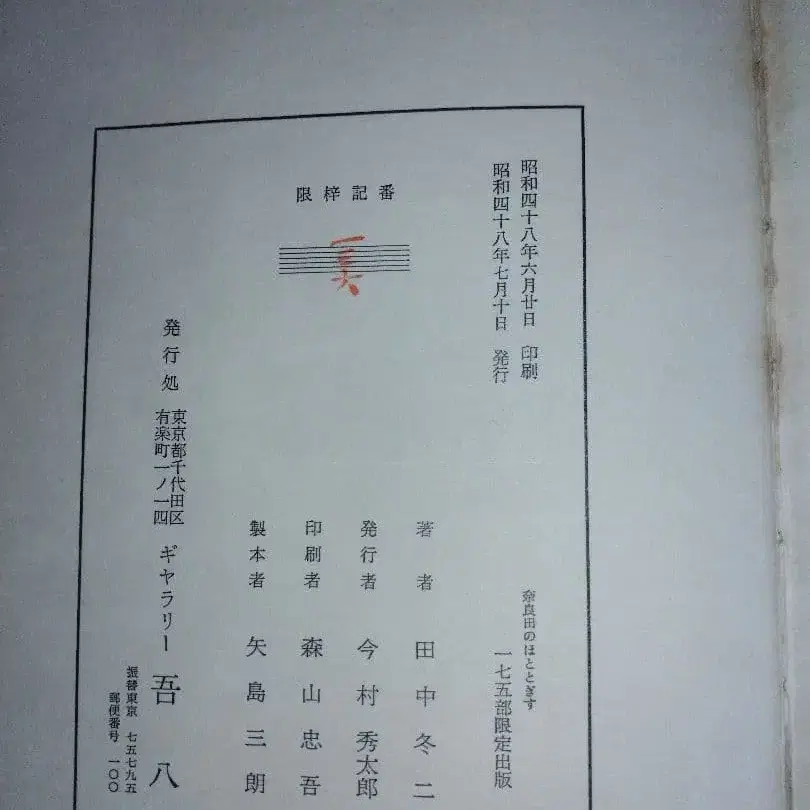 昭和四十八年六月廿日 印刷
昭和四十八年七月十日 発行
奈良田のほととぎす
一七五部限定出版
著者 田中冬二
発行者 今村秀太郎
番記梓限
印刷者 森山忠吾
製本者 矢島三朗
発行処
東京都千代田区
有楽町一ノ一四
ギャラリー 吾八
振替東京 七五七九五
郵便番号 一〇〇